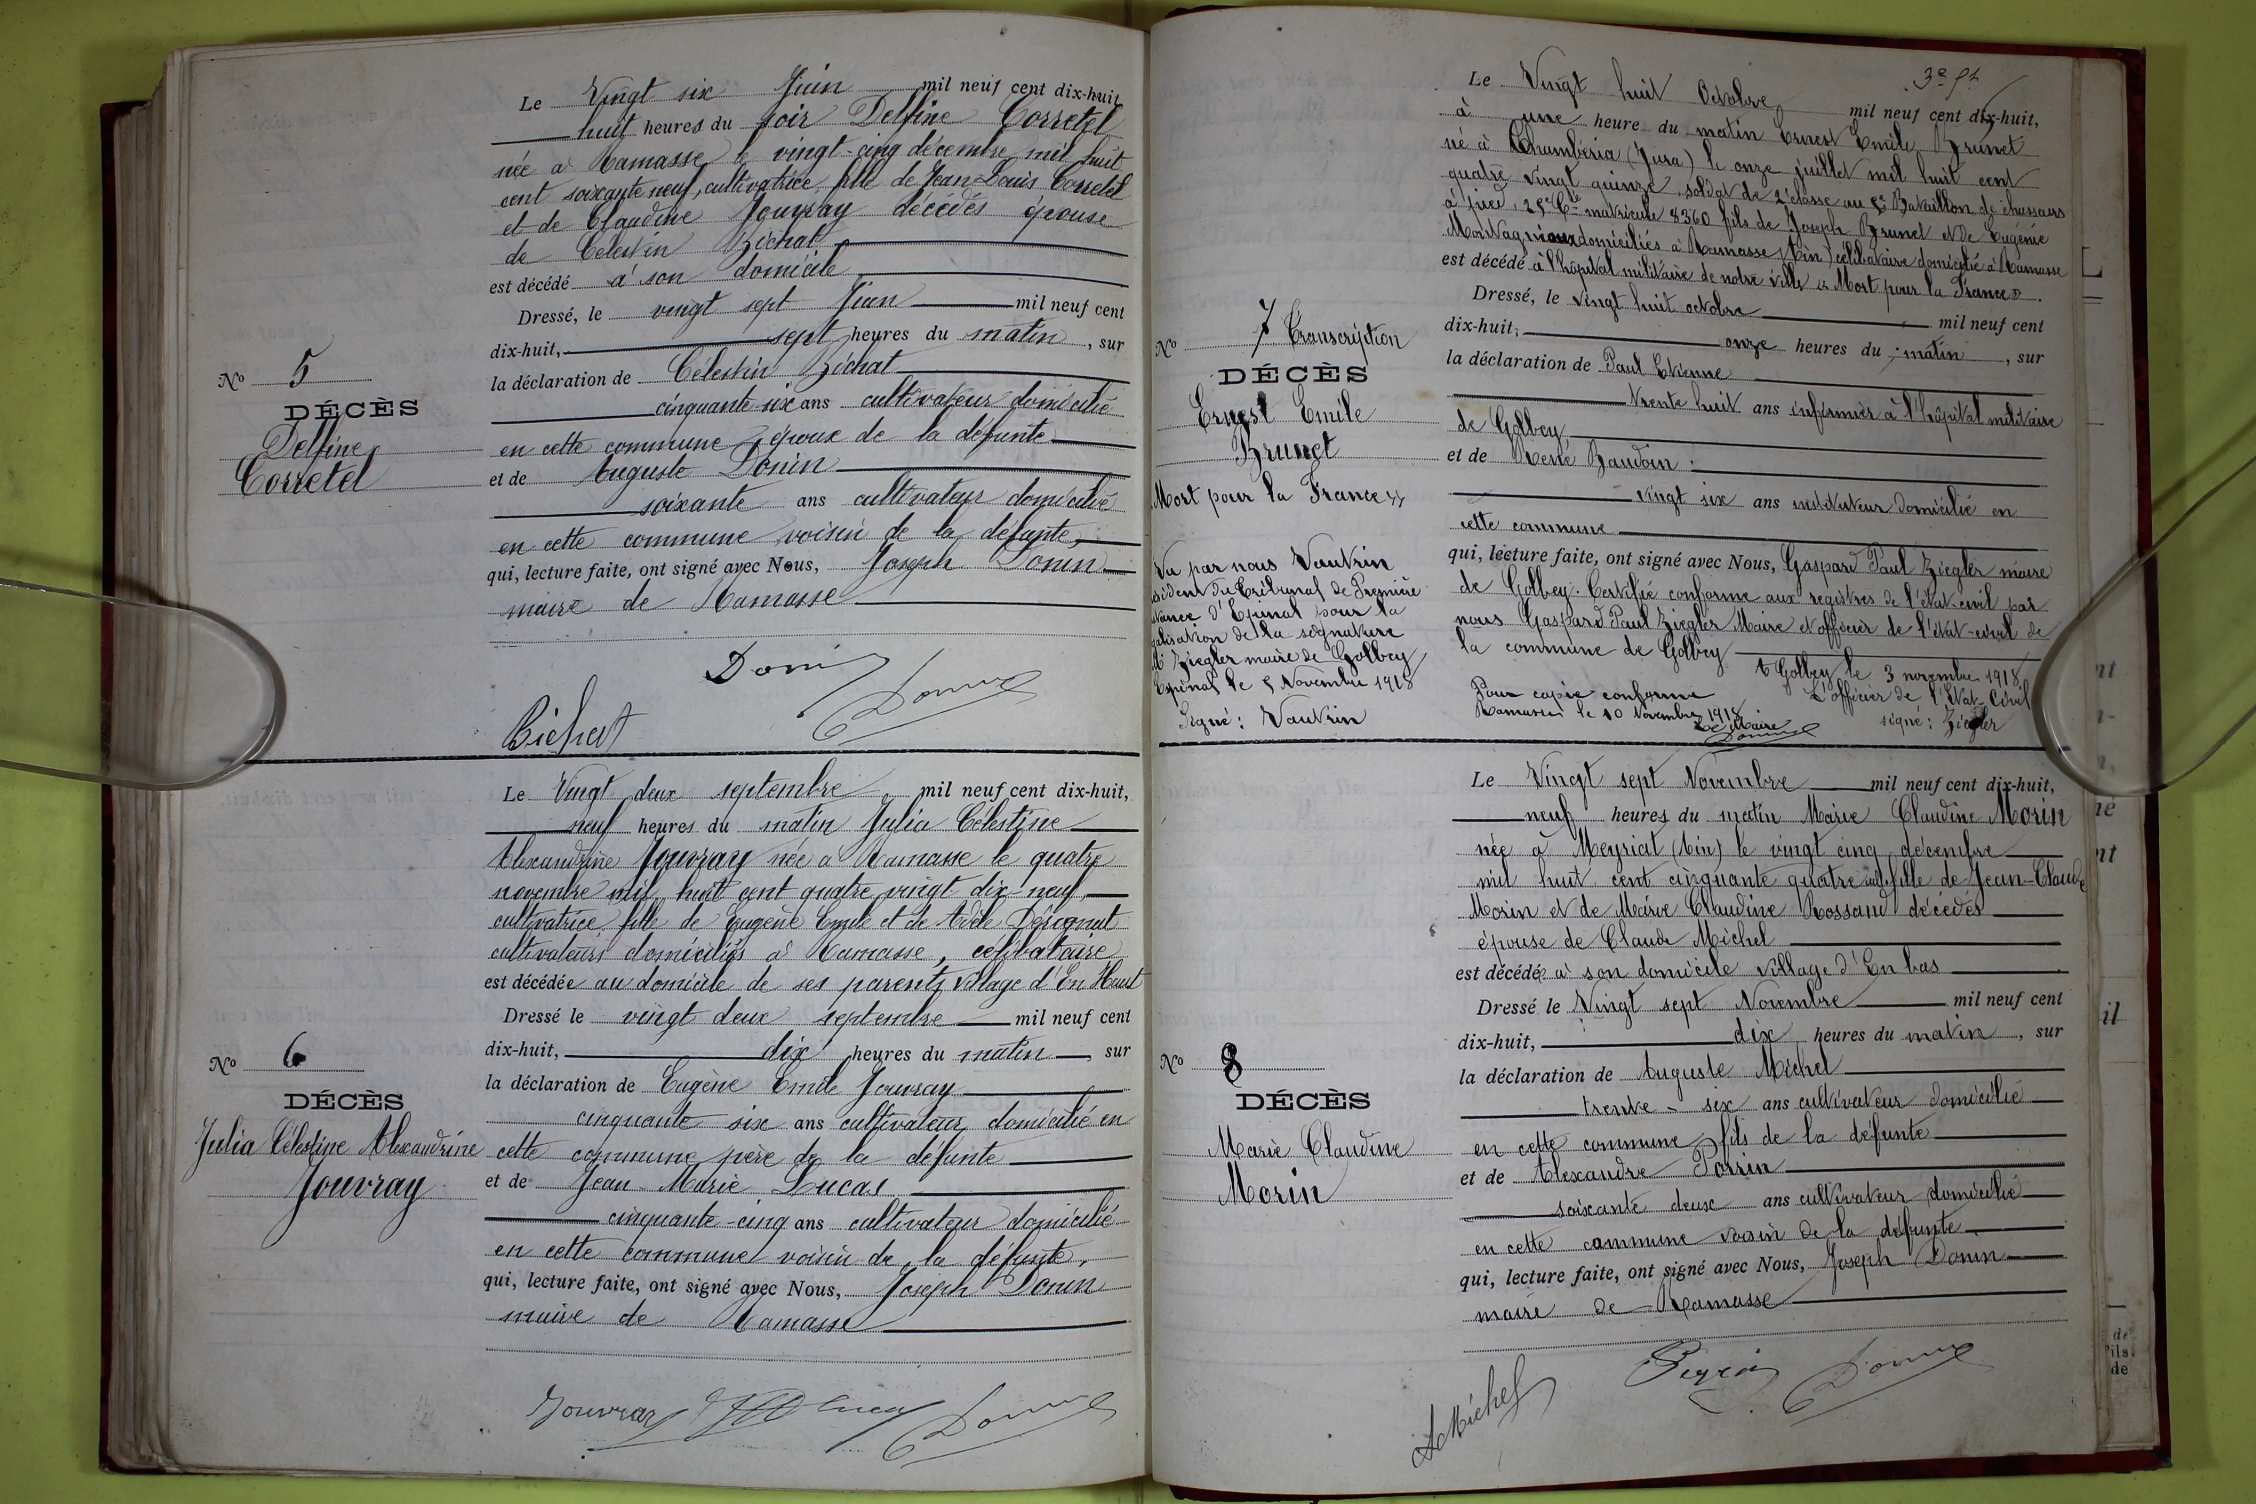 Le Vingt six Juin mil neuf cent dix-huit,
huit heures du soir Delfine Corretel
née à Ramasse le vingt-cinq décembre mil huit
cent soixante neuf, cultivatrice, fille de Jean-Louis Corretel
et de Claudine Jouvray décédés épouse
de Célestin Bichat
est décédé à son domicile
Dressé, le vingt sept Juin mil neuf cent
dix-huit, sept heures du matin, sur
la déclaration de Célestin Bichat
cinquante-six ans cultivateur domicilié
en cette commune époux de la défunte
et de Auguste Donin
soixante ans cultivateur domicilié
en cette commune voisin de la défunte,
qui, lecture faite, ont signé avec Nous, Joseph Donin
maire de Ramasse
Donin
Bichat
Donin
No 5
DÉCÈS
Delfine
Corretel
Le Vingt deux septembre mil neuf cent dix-huit,
neuf heures du matin Julia Célestine
Alexandrine Jouvray née à Ramasse le quatre
novembre mil huit cent quatre vingt dix-neuf
cultivatrice fille de Eugène Emile et de Adèle
cultivateurs domiciliés à Ramasse, célibataire
est décédée au domicile de ses parents village d'En Haut
Dressé le vingt deux septembre mil neuf cent
dix-huit, dix heures du matin, sur
la déclaration de Eugène Emile Jouvray
cinquante six ans cultivateur domicilié en
cette commune père de la défunte
et de Jean-Marie Lucas
cinquante-cinq ans cultivateur domicilié
en cette commune voisin de la défunte,
qui, lecture faite, ont signé avec Nous, Joseph Donin
maire de Ramasse
Jouvray Lucas Donin
No 6
DÉCÈS
Julia Célestine Alexandrine
Jouvray
Le Vingt huit Octobre mil neuf cent dix-huit,
à une heure du matin Ernest Emile Brunet
né à Chamberia (Jura) le onze juillet mil huit cent
quatre vingt quinze, soldat de 2e classe au Bataillon de chasseurs
à pied, 25e Cie matricule 8360 fils de Joseph Brunet et de Eugénie
domiciliés à Ramasse (Ain) célibataire domicilié à Ramasse
est décédé à l'hôpital militaire de notre ville « Mort pour la France ».
Dressé, le vingt huit octobre mil neuf cent
dix-huit, onze heures du matin, sur
la déclaration de Paul Etienne
trente huit ans infirmier à l'hôpital militaire
de Golbey
et de René Baudoin
vingt six ans instituteur domicilié en
cette commune
qui, lecture faite, ont signé avec Nous, Gaspard Paul Ziegler maire
de Golbey. Certifié conforme aux registres de l'état-civil par
nous Gaspard Paul Ziegler Maire et officier de l'état-civil de
la commune de Golbey
A Golbey le 3 novembre 1918
L'officier de l'Etat-Civil
signé: Ziegler
Pour copie conforme
Ramasse le 10 Novembre 1918
Le Maire
Donin
No 7 Transcription
DÉCÈS
Ernest Emile
Brunet
Mort pour la France »
Vu par nous Vautrin
sident du Tribunal de Première
stance d'Epinal pour la
alisation de la signature
Mr Ziegler maire de Golbey
Epinal le 5 Novembre 1918
Signé: Vautrin
Le Vingt sept Novembre mil neuf cent dix-huit,
neuf heures du matin Marie Claudine Morin
née à Meyriat (Ain) le vingt cinq décembre
mil huit cent cinquante quatre fille de Jean-Claude
Morin et de Marie Claudine Rossand décédés
épouse de Claude Michel
est décédée à son domicile village d'En bas
Dressé le Vingt sept Novembre mil neuf cent
dix-huit, dix heures du matin, sur
la déclaration de Auguste Michel
trente-six ans cultivateur domicilié
en cette commune fils de la défunte
et de Alexandre Perrin
soixante deux ans cultivateur domicilié
en cette commune voisin de la défunte
qui, lecture faite, ont signé avec Nous, Joseph Donin
maire de Ramasse
A Michel Perrin Donin
No 8
DÉCÈS
Marie Claudine
Morin